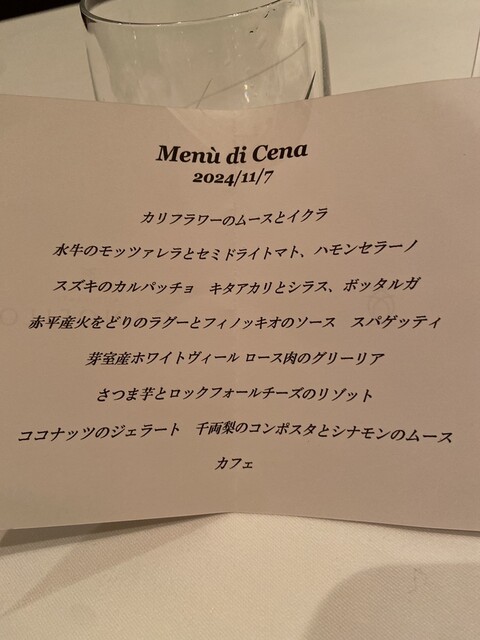 Menù di Cena
2024/11/7
カリフラワーのムースとイクラ
水牛のモッツァレラとセミドライトマト、ハモンセラーノ
スズキのカルパッチョ　キタアカリとシラス、ボッタルガ
赤平産火をどりのラグーとフィノッキオのソース　スパゲッティ
芽室産ホワイトヴィール ロース肉のグリーリア
さつま芋とロックフォールチーズのリゾット
ココナッツのジェラート　千両梨のコンポスタとシナモンのムース
カフェ